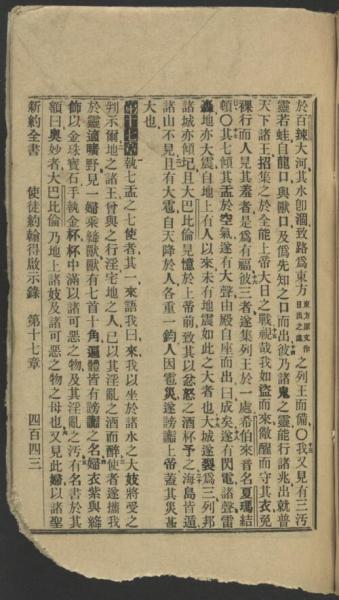 於百辣大河其水卽涸致路爲東方東方原文作日出之處之列王而備〇我又見有三汚
靈若蛙自龍口與獸口及僞先知之口而出彼乃諸鬼之靈能行諸兆出就普
天下諸王招集之於全能上帝大日之戰視哉我如盜而來儆醒而守其衣免
裸行而人見其羞者是者有福彼三者遂集列王於一處希伯來音名夏瑪結
頓〇其七傾其盂於空氣遂有大聲由殿自座而出曰成矣遂有閃電諸聲雷
轟地亦大震自地上有人以來未有地震如此之大者也大城遂裂爲三列邦
諸城亦傾圮且大巴比倫見憶於上帝前致其以忿怒之酒杯予之海島皆遁
諸山不見且有大雹自天降於人各重一鈞人因雹災遂謗讟上帝蓋其災甚
大也
第十七章執七盂之七使者其一來語我曰來我以坐於諸水之大妓將受之
判示爾地之諸王曾與之行淫宅地之人已以其淫亂之酒而醉使者遂攜我
於靈適曠野見一婦乘絳獸獸有七首十角遍體皆有謗讟之名婦衣紫與絳
飾以金珠寶石手執金杯杯中滿以諸可惡之物及其淫亂之汚有名書於其
額曰奧妙者大巴比倫乃地上諸妓及諸可惡之物之母也又見此婦以諸聖
新約全書　使徒約翰得啟示錄　第十七章　四百四三